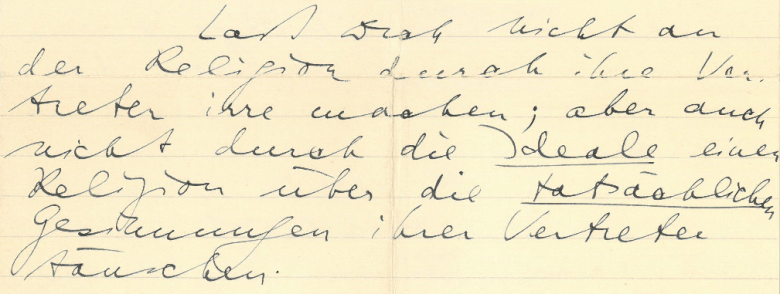 Laß Dich nicht an
der Religion durch ihre Ver-
treter irre machen; aber auch
nicht durch die Ideale einer
Religion über die tatsächlichen
Gesinnungen ihrer Vertreter
täuschen.